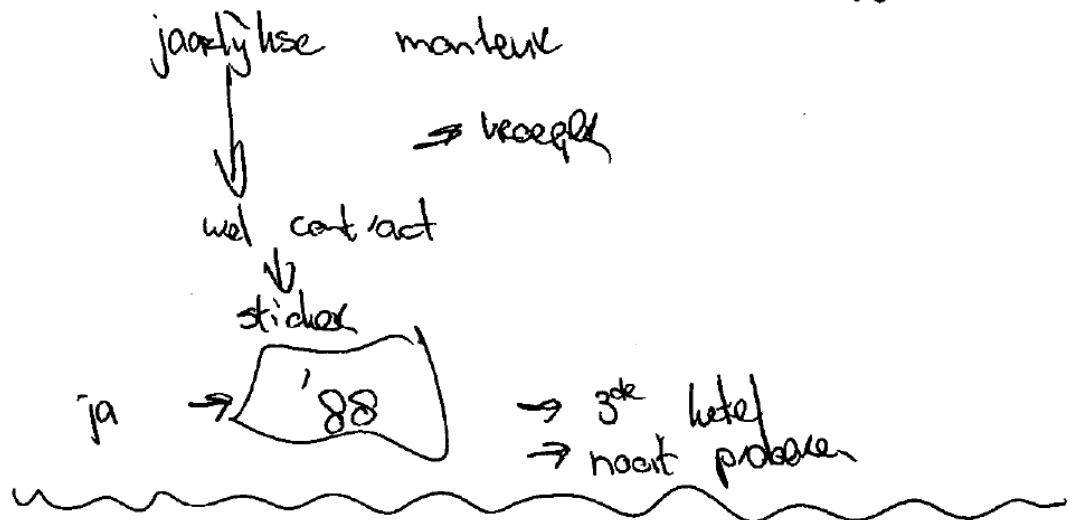 jaarlijkse monteur
→ vroeger
wel contract
sticker
ja → '88 → 3de ketel
→ nooit problemen